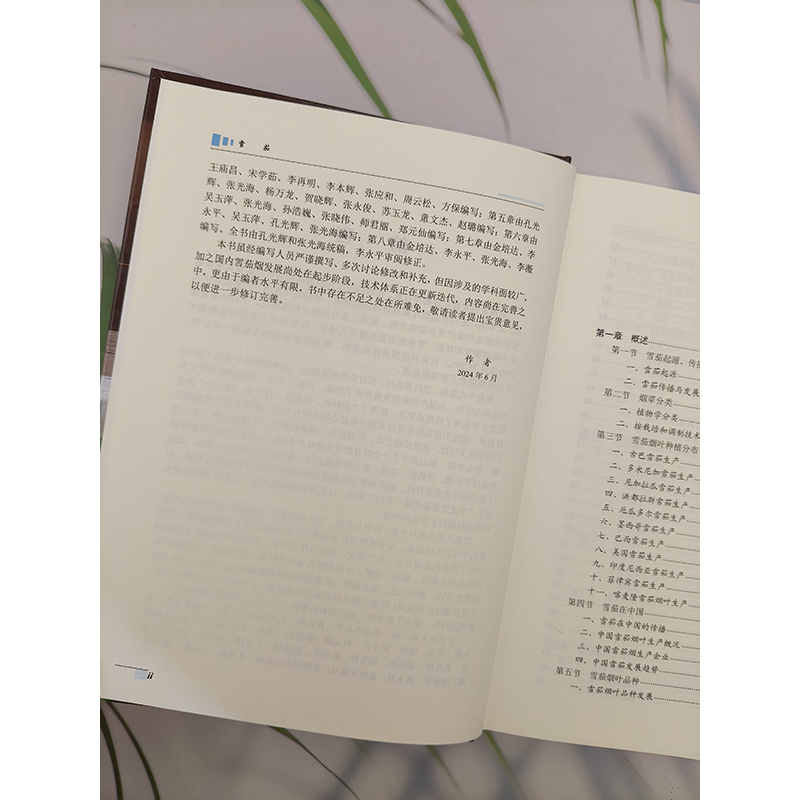 雪 茄
王庙昌、宋学茹、李再明、李本辉、张应和、周云松、方保编写；第五章由孔光
辉、张光海、杨万龙、贺晓辉、张永俊、苏玉龙、童文杰、赵璐编写；第六章由
吴玉萍、张光海、孙浩巍、张晓伟、薛君丽、郑元仙编写；第七章由金培达、李
永平、吴玉萍、孔光辉、张光海编写；第八章由金培达、李永平、张光海、李薇
编写。全书由孔光辉和张光海统稿，李永平审阅修正。
本书虽经编写人员严谨撰写、多次讨论修改和补充，但因涉及的学科面较广，
加之国内雪茄烟发展尚处在起步阶段，技术体系正在更新迭代，内容尚在完善之
中，更由于编者水平有限，书中存在不足之处在所难免，敬请读者提出宝贵意见，
以便进一步修订完善。
作 者
2024 年 6 月
ii
第一章 概述
第一节 雪茄起源、传
一、雪茄起源
二、雪茄传播与发展
第二节 烟草分类
一、植物学分类
二、按栽培和调制技术
第三节 雪茄烟叶种植分布
一、古巴雪茄生产
二、多米尼加雪茄生产
三、尼加拉瓜雪茄生产
四、洪都拉斯雪茄生产
五、厄瓜多尔雪茄生产
六、墨西哥雪茄生产
七、巴西雪茄生产
八、美国雪茄生产
九、印度尼西亚雪茄生产
十、菲律宾雪茄生产
十一、喀麦隆雪茄烟叶生产
第四节 雪茄在中国
一、雪茄在中国的传播
二、中国雪茄烟叶生产概况
三、中国雪茄烟生产企业
四、中国雪茄发展趋势
第五节 雪茄烟叶品种
一、雪茄烟叶品种发展